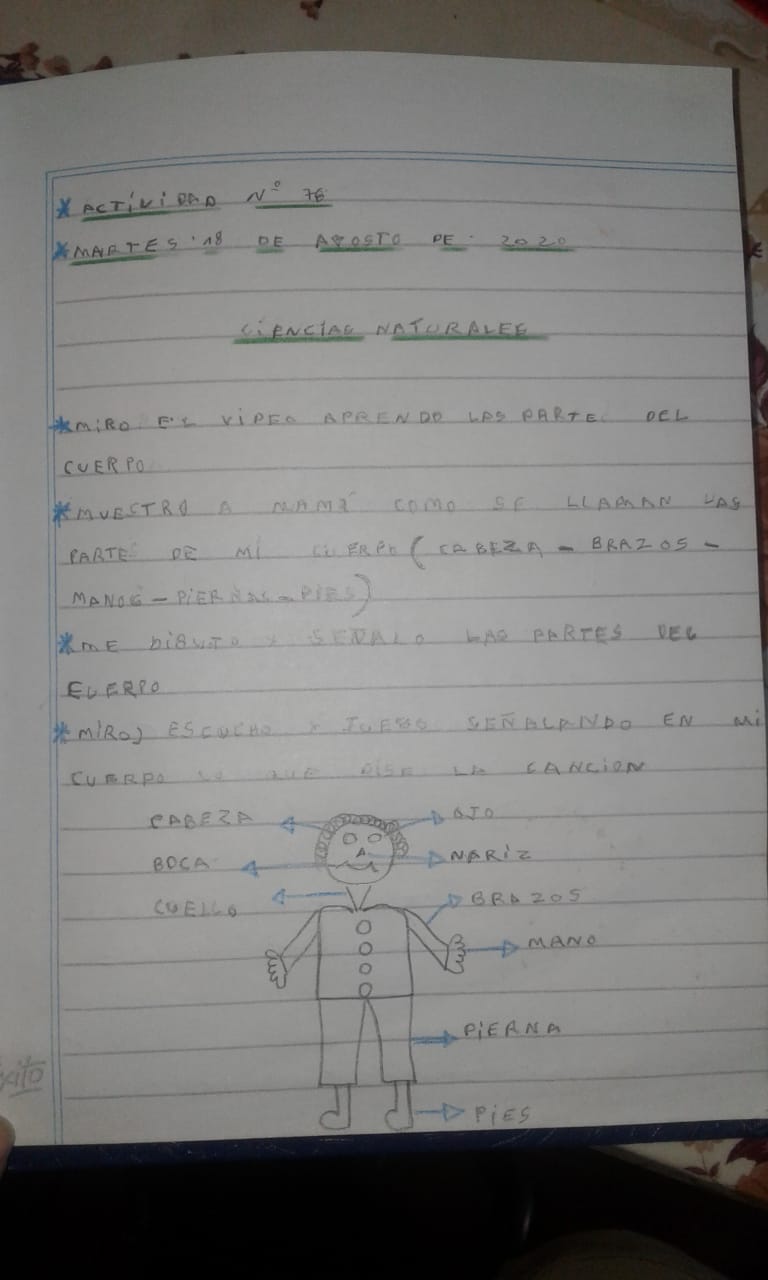 * ACTIVIDAD Nº 76
* MARTES 18 DE AGOSTO DE 2020
CIENCIAS NATURALES
* MIRO EL VIDEO APRENDO LAS PARTE DEL
CUERPO
* MUESTRO A MAMÁ COMO SE LLAMAN LAS
PARTES DE MI CUERPO (CABEZA - BRAZOS -
MANOS - PIERNAS - PIES)
* ME DIBUJO Y SEÑALO LAS PARTES DEL
CUERPO
* MIRO, ESCUCHO Y JUEGO SEÑALANDO EN MI
CUERPO LO QUE DISE LA CANCION
CABEZA
OJO
BOCA
NARIZ
CUELLO
BRAZOS
MANO
PIERNA
PIES